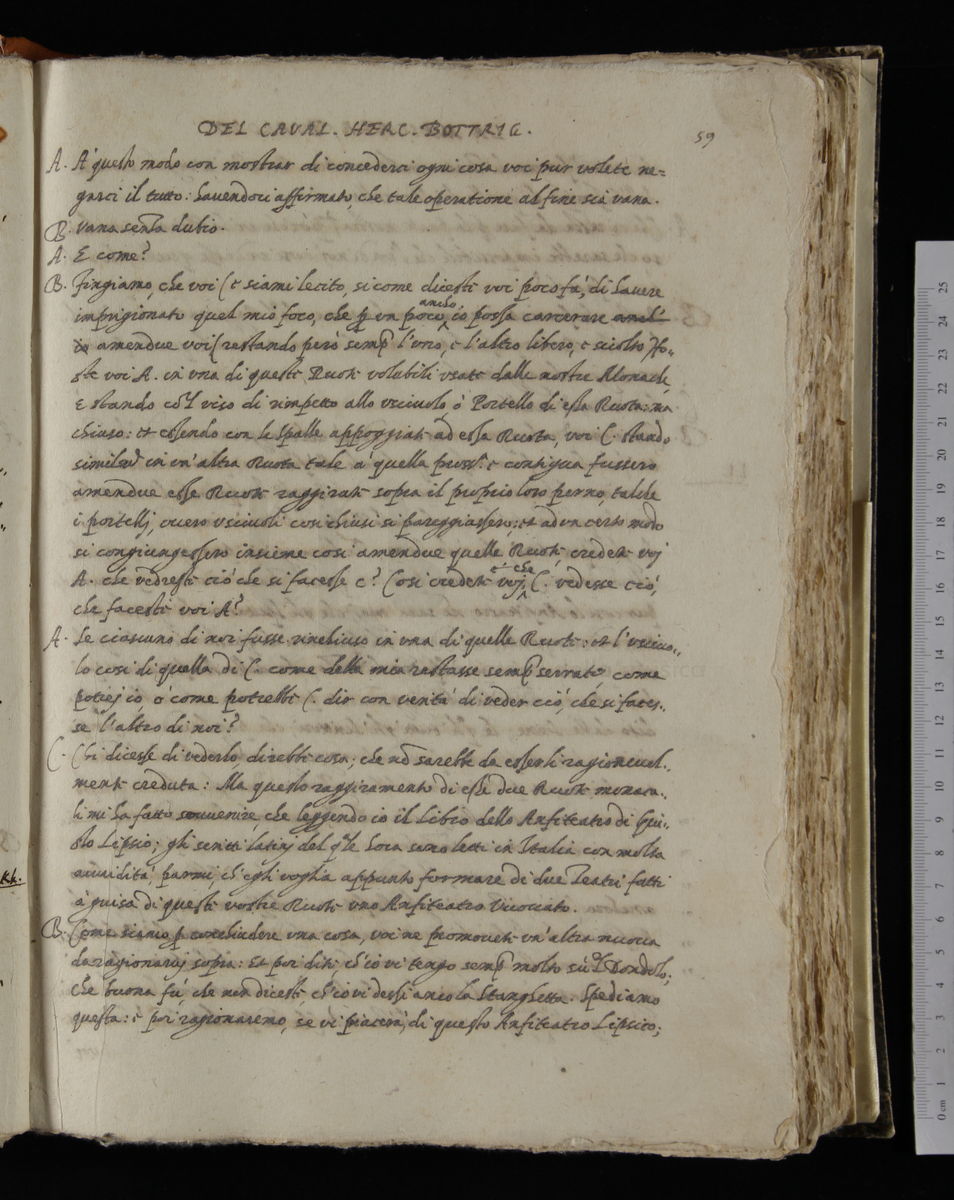 DEL CAVAL. HERC. BOTTRIG.
59
A. A' questo modo con mostrar di concederci ogni cosa voi pur volete ne=
garci il tutto: havendoci affirmato, che tale operatione al fine sia vana.
B. Vana senza dubio.
A. E come?
B. Fingiamo, che voi C e siami lecito, si come dicesti voi poco fà, di havere
imprigionato quel mio foco, che p un poco ancho io possa carcerare
amendue voi (restando però semp l'uno, e l'altro libero, e sciolto) Ho..
ste voi A. in una di queste Ruote volubili usate dalle nostre Monache,
E stando col viso di rimpetto allo usciuolo, ò Portello di essa Ruota: ma
chiuso: et essendo con le spalle appoggiate ad essa Ruota, voi C. stando
in un'altra Ruota tale a' quella e contigua fussero
amendue esse Ruote raggirate sopra il proprio loro perno, talche
i portelli, overo usciuoli cosi chiusi si pareggiassero; et ad un certo modo
si congiungessero insieme cosi amendue quelle Ruote, credete voj
A. che vedresti ciò che si facesse C? Cosi credete voj, e' che C. vedesse ciò,
che facesti voi A?
A. Se ciascuno di noi fusse rinchiuso in una di quelle Ruote: et l'usciuo..
lo cosi di quella di C. come della mia restasse semp serrato come
potrej io, ò come potrebbe C. dir con verità di veder ciò, che si faces..
se l'altro di noi?
C. Chi dicesse di vederlo direbbe cosa, che nō sarebbe da esserli ragionevol..
mente creduta: Ma questo raggiramento di esse due Ruote monaca..
li mi ha fatto sovvenire, che leggendo io il Libro dello Anfiteatro di Giu..
sto Lipsio; gli scritti latinj del qle hora sono letti in Italia con molta
avvidità, parmi, ch'egli voglia appunto formare di due Teatri fatti
à guisa di queste vostre Ruote uno Anfiteatro
KK.
B. Come siamo p conchiudere una cosa, voi ne promovete un'altra nuova
da ragionarvi sopra: Et poi dite ch'io vi tengo semp molto sù 'l Dondolo,
che buona fù, che non dicesti, ch'io vi dessi anco la Stanghetta. Spediamo
questa: e poi ragionaremo, se vi piacerà, di questo Anfiteatro Lipsico;